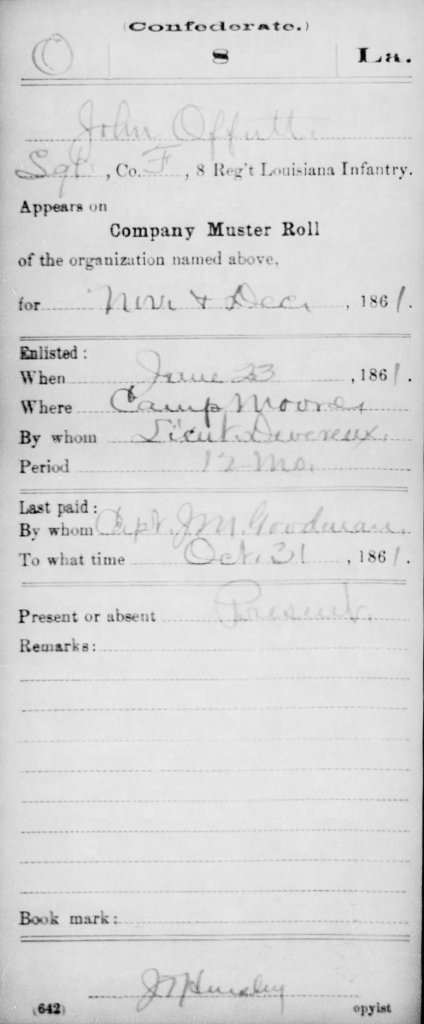 (Confederate.)
O 8 La.
John Offutt.
Sgt., Co. F, 8 Reg't Louisiana Infantry.
Appears on
Company Muster Roll
of the organization named above,
for Nov. & Dec., 1861.
Enlisted:
When June 23, 1861.
Where Camp Moore,
By whom Lieut. Devereux.
Period 12 mo.
Last paid:
By whom Capt. J.M. Goodman.
To what time Oct. 31, 1861.
Present or absent Present.
Remarks:
Book mark:
(642) opyist